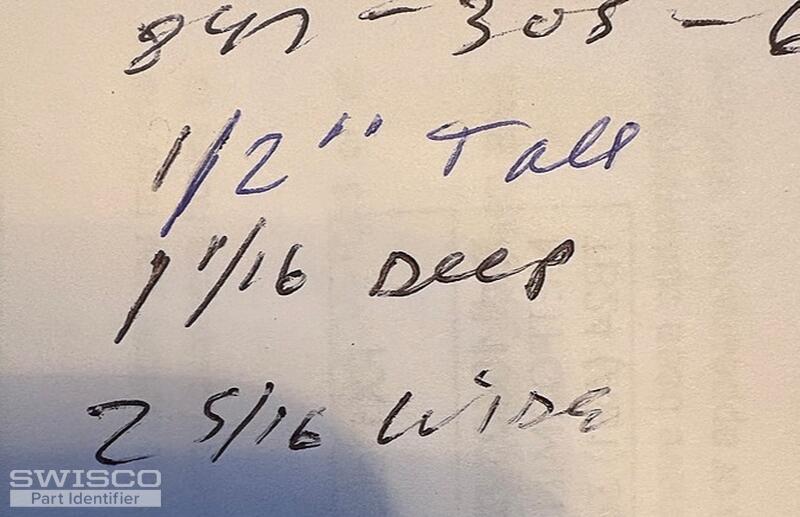 847-305-6
1/2" Tall
1 11/16 Deep
2 5/16 WIDE
SWISCO
Part Identifier